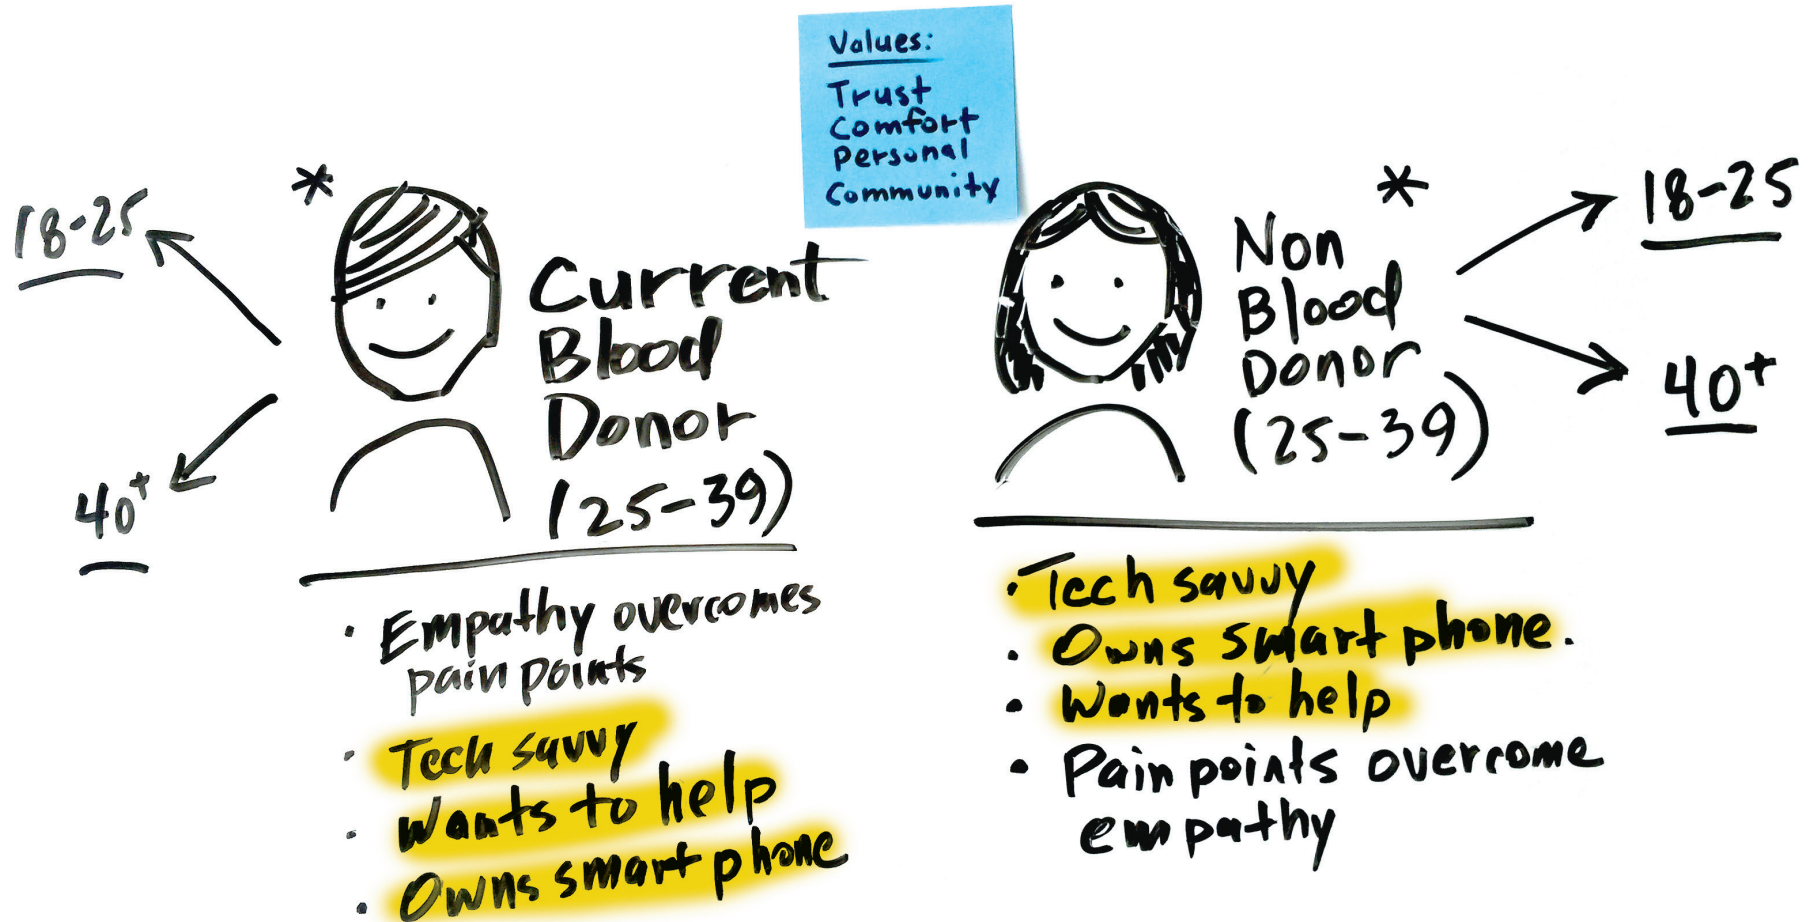 Values:
Trust
Comfort
Personal
Community
18-25
40+
*
Current
Blood
Donor
(25-39)
• Empathy overcomes
pain points
• Tech savvy
• Wants to help
• Owns smart phone
*
Non
Blood
Donor
(25-39)
18-25
40+
• Tech savvy
• Owns smart phone.
• Wants to help
• Pain points overcome
empathy